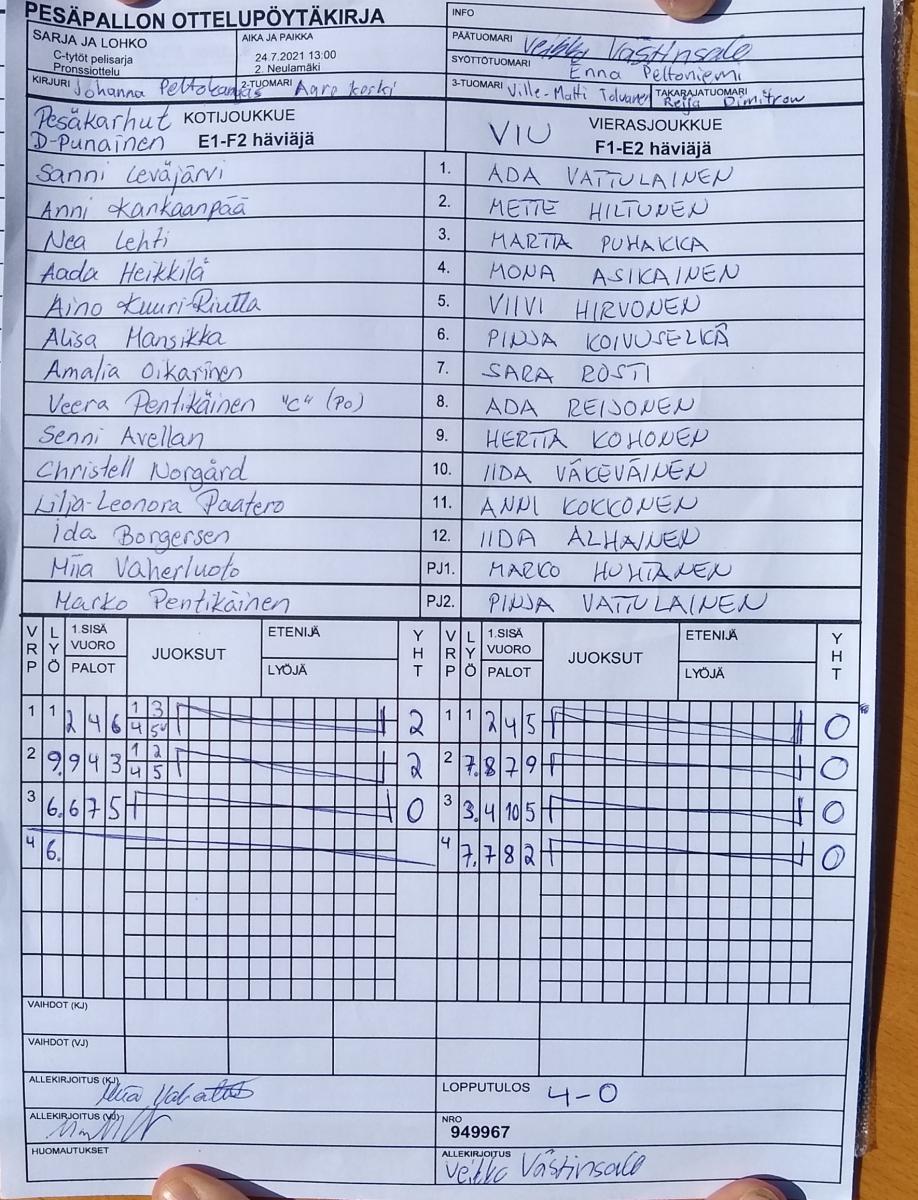 PESÄPALLON OTTELUPÖYTÄKIRJA
INFO
SARJA JA LOHKO
C-tytöt pelisarja
Pronssiottelu
AIKA JA PAIKKA
24.7.2021 13:00
2. Neulamäki
PÄÄTUOMARI Veikko Västinsalo
SYÖTTÖTUOMARI Enna Peltoniemi
KIRJURI Johanna Peltokangas
2-TUOMARI Aaro Koski
3-TUOMARI Ville-Matti Tolvanen
TAKARAJATUOMARI Reija Dimitrow
Pesäkarhut D-Punainen
KOTIJOUKKUE
E1-F2 häviäjä
VIU
VIERASJOUKKUE
F1-E2 häviäjä
Sanni Leväjärvi 1. ADA VATTULAINEN
Anni Kankaanpää 2. METTE HILTUNEN
Nea Lehti 3. MARTTA PUHAKKA
Aada Heikkilä 4. MONA ASIKAINEN
Aino Kuuri-Riutta 5. VIIVI HIRVONEN
Alisa Mansikka 6. PINJA KOIVUSELKÄ
Amalia Oikarinen 7. SARA ROSTI
Veera Pentikäinen "C" (Po) 8. ADA REIJONEN
Senni Avellan 9. HERTTA KOHONEN
Christell Norgård 10. IIDA VÄKEVÄINEN
Lilja-Leonora Paatero 11. ANNI KOKKONEN
Ida Borgersen 12. IIDA ALHAINEN
Miia Vaherluoto PJ1. MARKO HUHTANEN
Marko Pentikäinen PJ2. PINJA VATTULAINEN
VRP LYÖ 1.SISÄ VUORO PALOT JUOKSUT ETENIJÄ LYÖJÄ YHT VRP LYÖ 1.SISÄ VUORO PALOT JUOKSUT ETENIJÄ LYÖJÄ YHT
1 1 2 4 6 1 3 2 1 1 2 4 5 0
4 5
2 9. 9 4 3 1 2 2 2 7. 8 7 9 0
4 5
3 6. 6 7 5 0 3 3. 4 10 5 0
4 6. 4 7. 7 8 2 0
VAIHDOT (KJ)
VAIHDOT (VJ)
ALLEKIRJOITUS (KJ)
LOPPUTULOS 4-0
ALLEKIRJOITUS (VJ)
NRO
949967
HUOMAUTUKSET
ALLEKIRJOITUS
Veikko Västinsalo